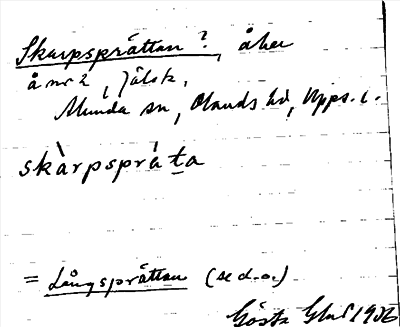 Skarpsprättan?, åker
å nr 2, Jälsta,
Alunda sn, Olands hd, Upps. l.
skàrpspráta
= Långsprättan (se d.o.)
Gösta 1906